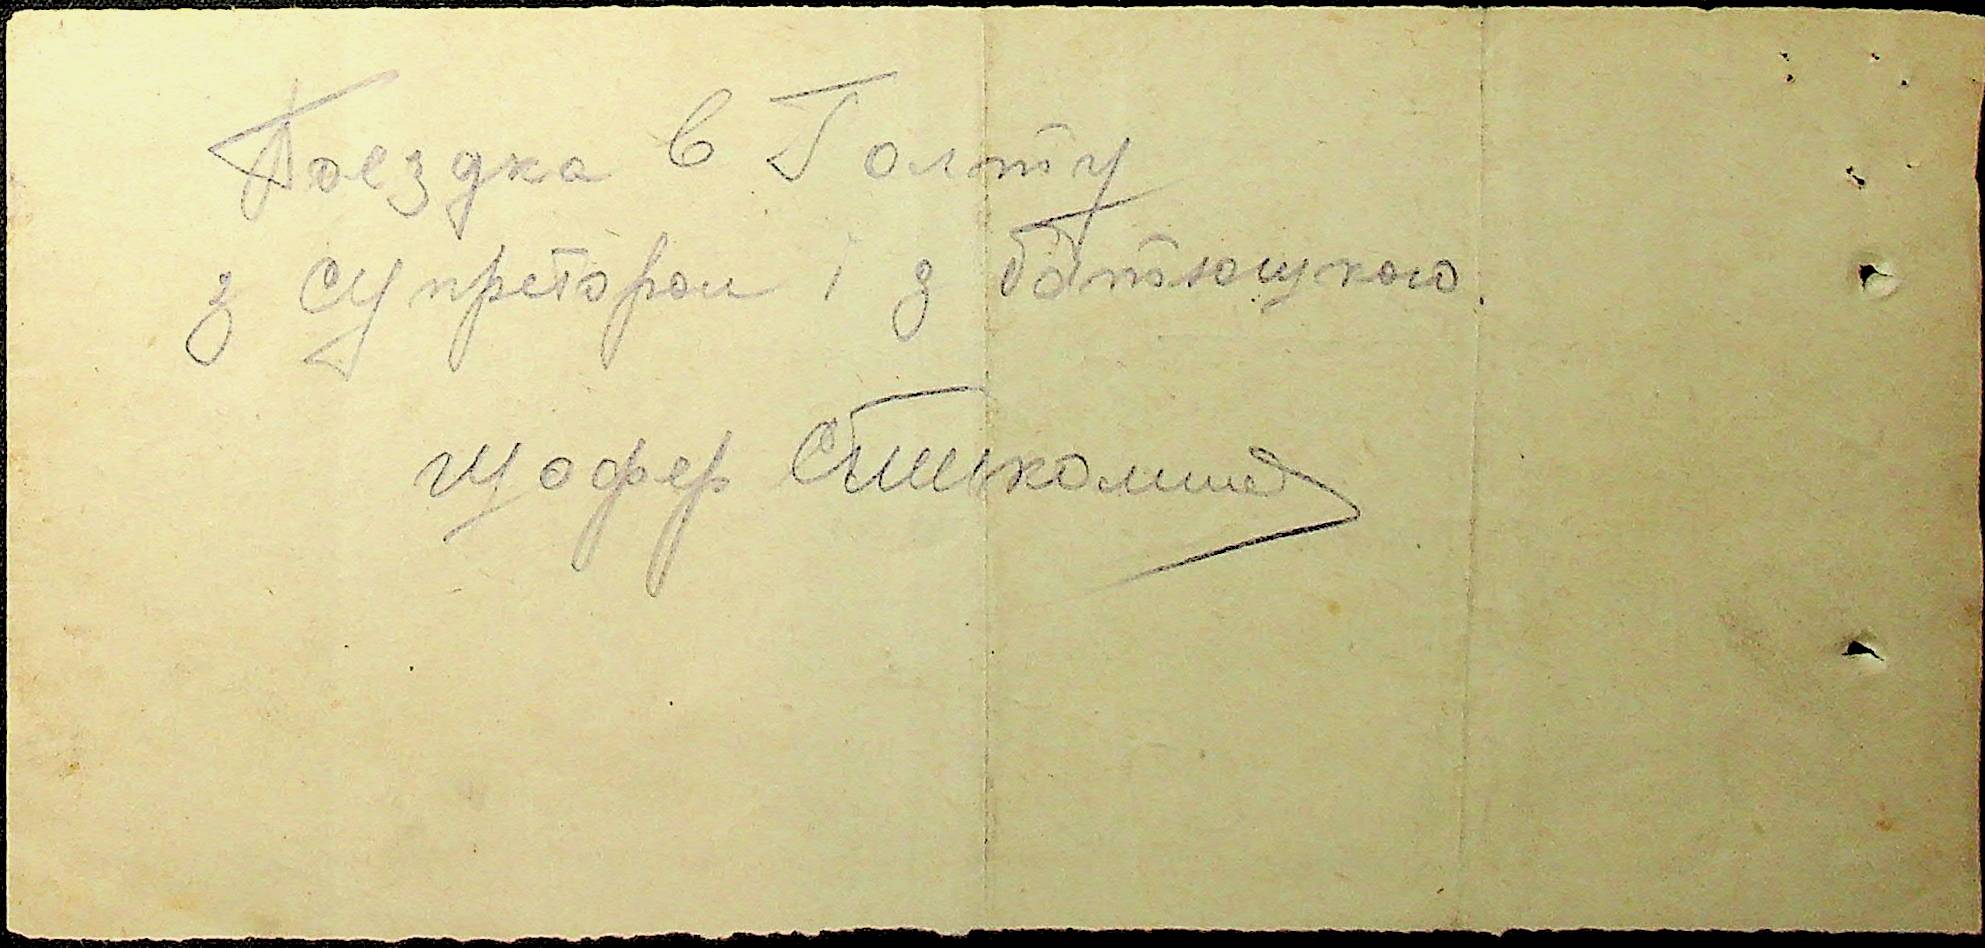 Поездка в Голту
з супретором і з батюшкою.
шофер